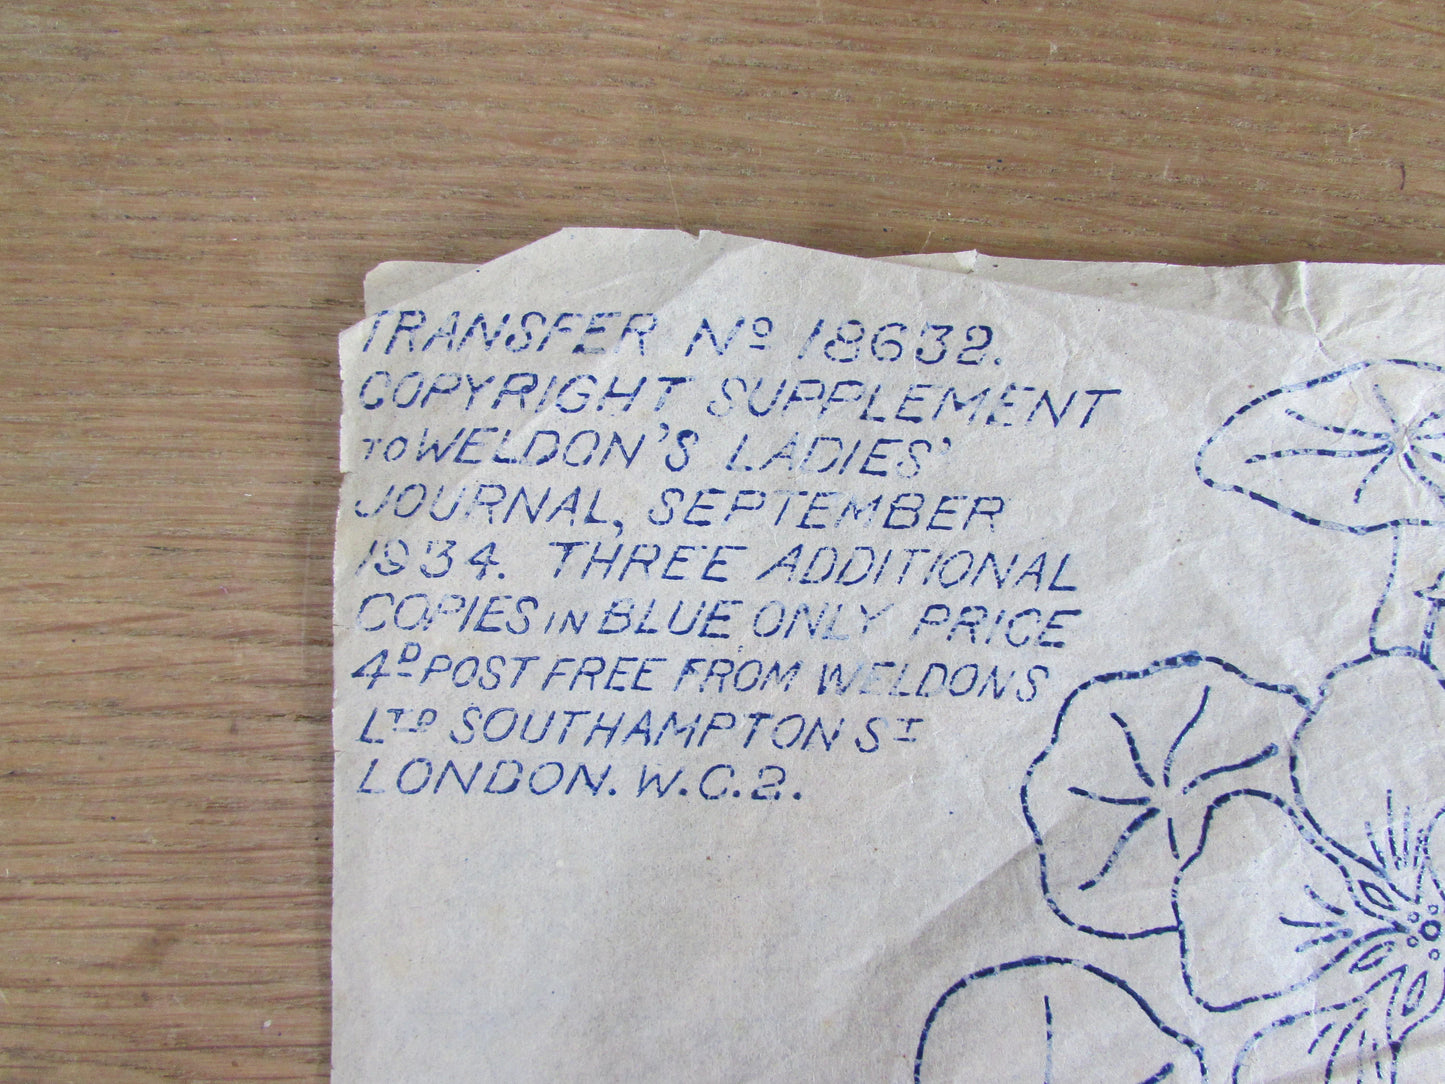 TRANSFER Nº 18632.
COPYRIGHT SUPPLEMENT
TO WELDON'S LADIES'
JOURNAL, SEPTEMBER
1934. THREE ADDITIONAL
COPIES IN BLUE ONLY PRICE
4D POST FREE FROM WELDONS
LTD SOUTHAMPTON ST
LONDON. W.C.2.